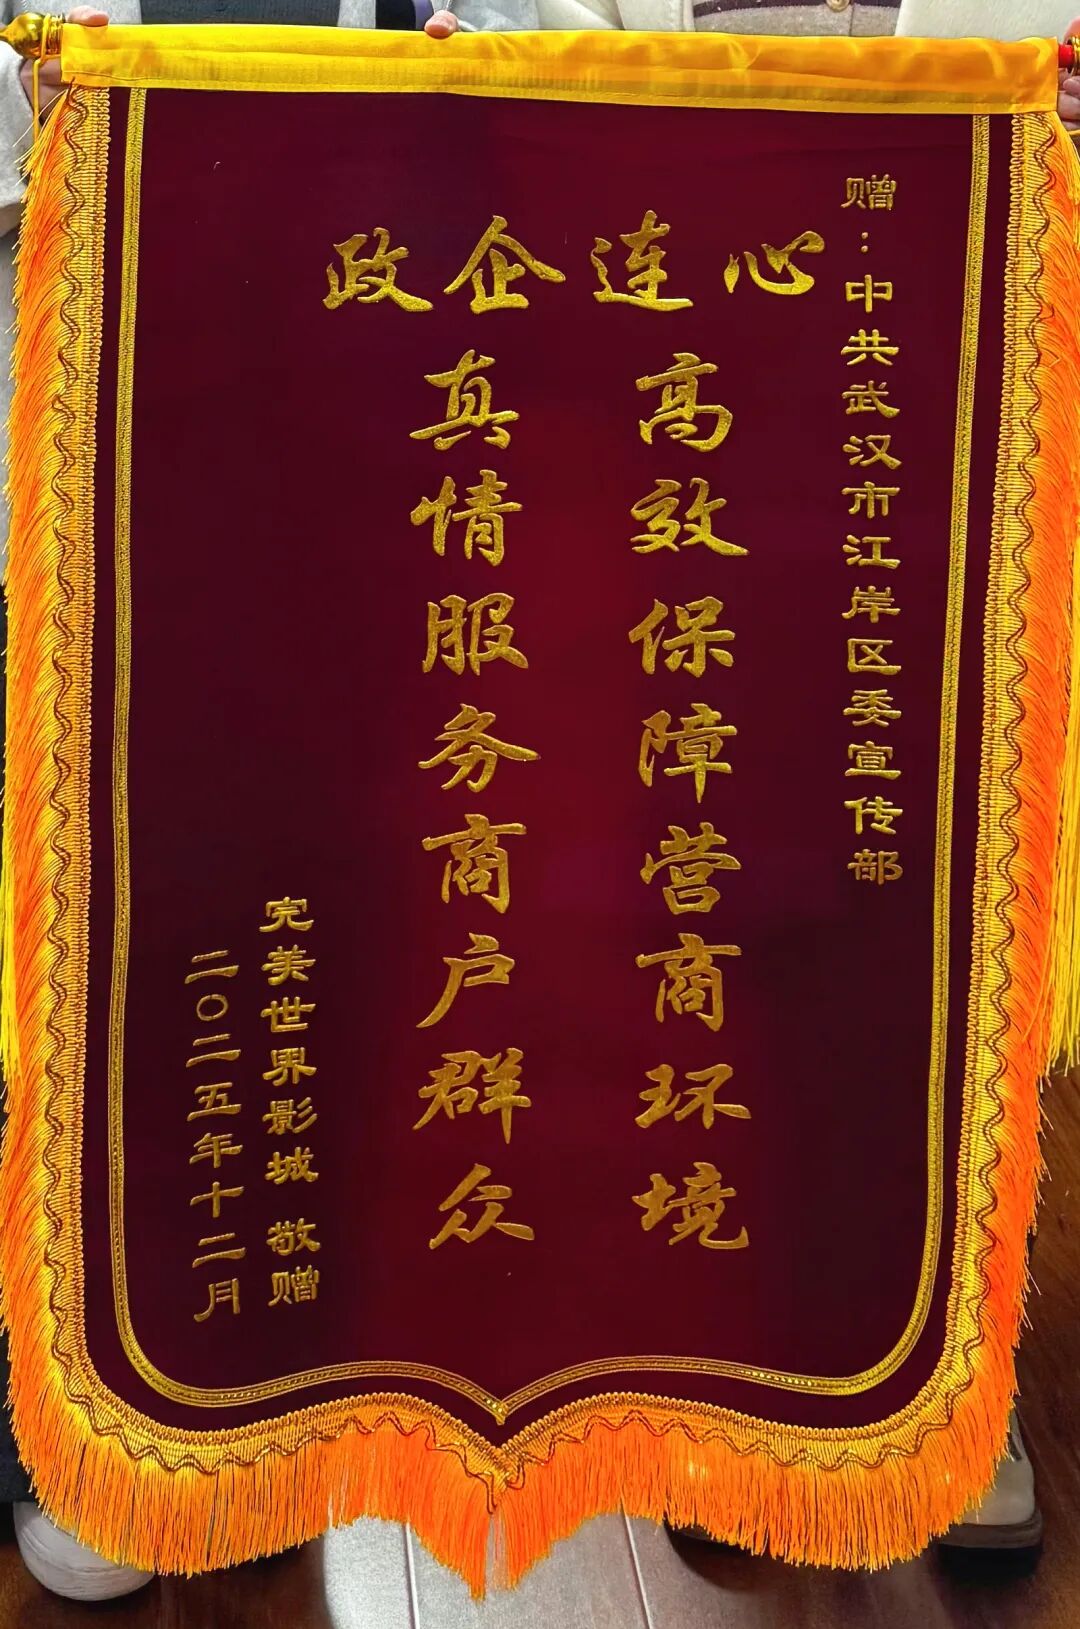 赠：中共武汉市江岸区委宣传部
政企连心
高效保障营商环境
真情服务商户群众
完美世界影城 敬赠
二〇二五年十二月